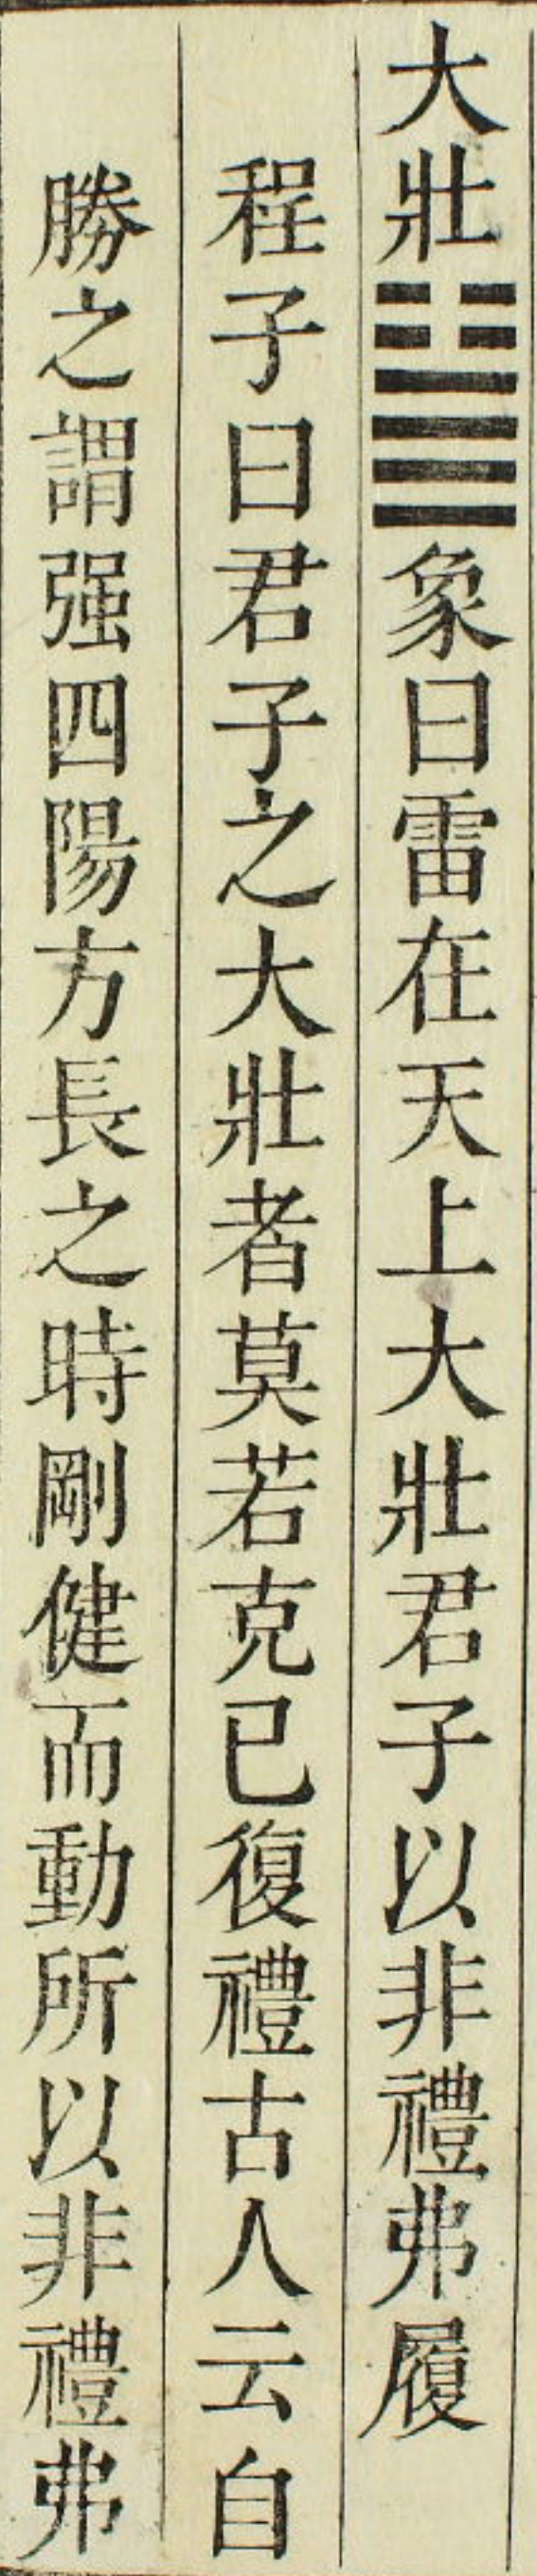 大壯䷡象曰雷在天上大壯君子以非禮弗履
程子曰君子之大壯者莫若克已復禮古人云自
勝之謂强四陽方長之時剛健而動所以非禮弗